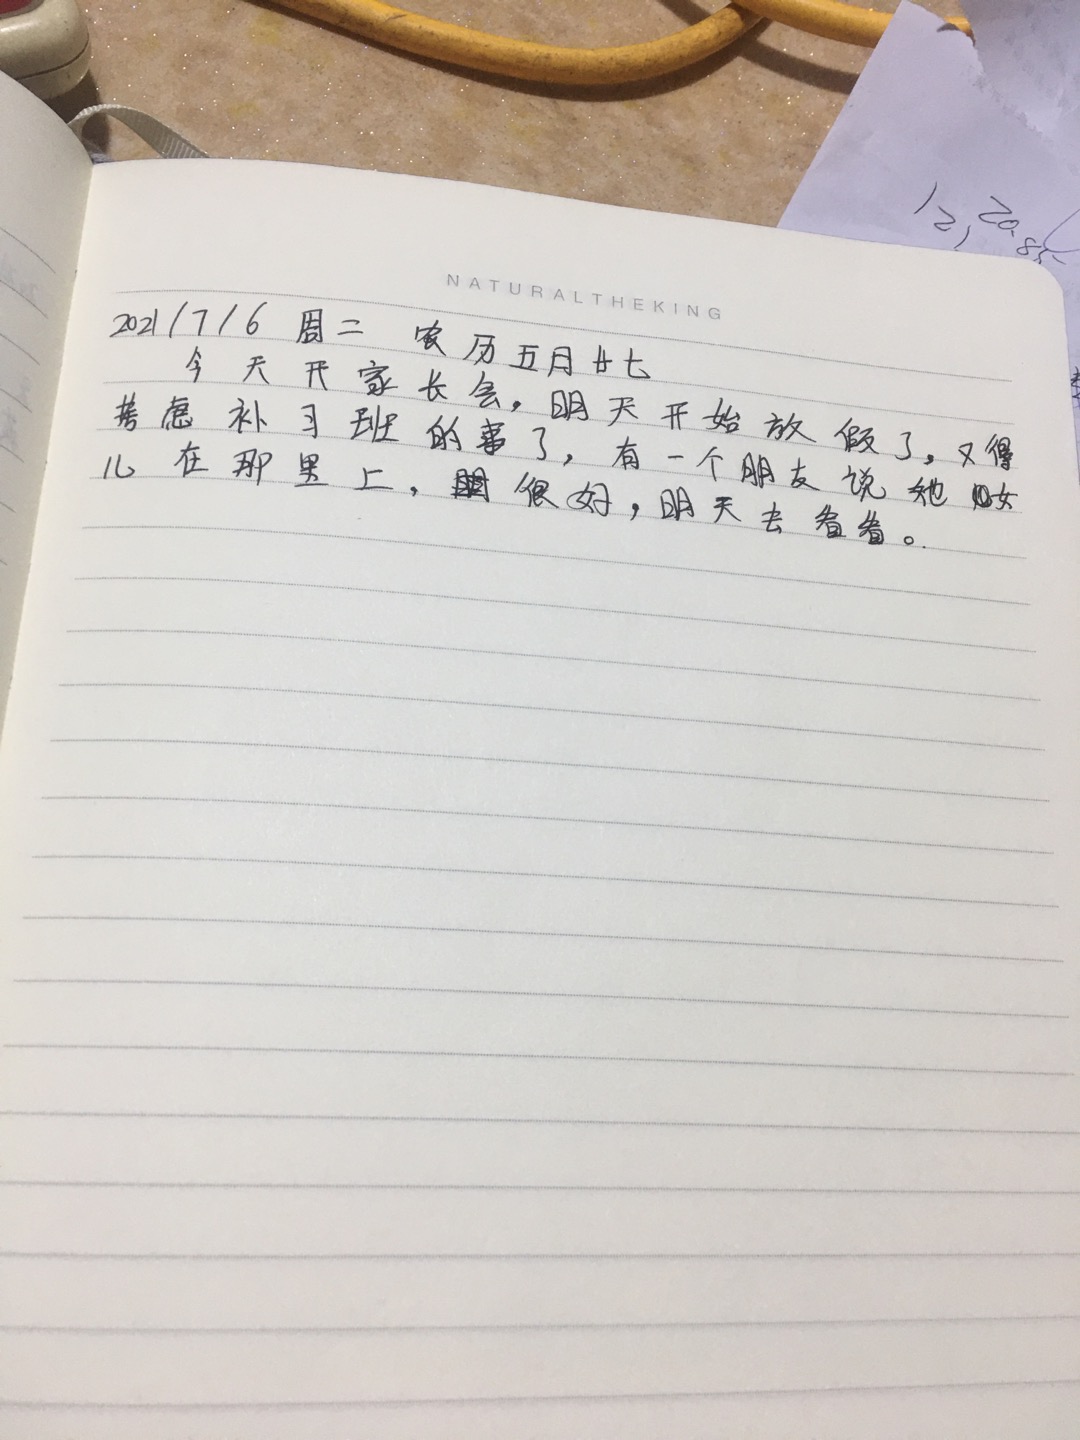 NATURALTHEKING
2021/7/6 周二 农历五月廿七
今天开家长会,明天开始放假了,又得
考虑补习班的事了,有一个朋友说她女
儿在那里上,很好,明天去看看。
12,
20.85